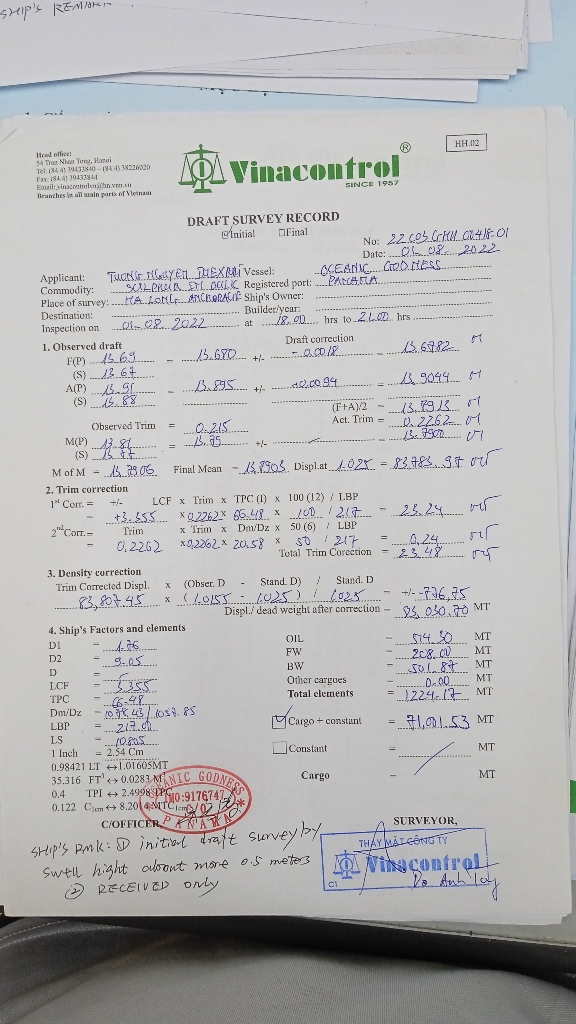 SHIP's REMARK
Head office:
54 Tran Nhan Tong, Hanoi
Tel: (84.4) 39433840 – (84.4) 38226020
Fax: (84.4) 39433844
Email: vinacontrolvn@hn.vnn.vn
Branches in all main ports of Vietnam
Vinacontrol ®
SINCE 1957
HH.02
DRAFT SURVEY RECORD
☑Initial ☐Final
No: 22C03GHH00418-01
Date: 01.08.2022
Applicant: Vessel: OCEANIC GODNESS
Commodity: SULPHUR IN BULK Registered port: PANAMA
Place of survey: HA LONG ANCHORAGE Ship's Owner:
Destination: Builder/year:
Inspection on 01-08-2022 at 18.00 hrs to 21.00 hrs
1. Observed draft Draft correction
F(P) 13.69 = 13.680 +/- -0.0018 = 13.6782 M
(S) 13.67
A(P) 13.91 = 13.895 +/- +0.0094 = 13.9044 M
(S) 13.88
(F+A)/2 = 13.7913 M
Observed Trim = 0.215 Act. Trim = 0.2262 M
M(P) 13.81 = 13.79 +/- = 13.7900 M
(S) 13.77
M of M = 13.7906 Final Mean = 13.8903 Displ.at 1.025 = 83783.97 MT
2. Trim correction
1st Corr. = +/- LCF x Trim x TPC (I) x 100 (12) / LBP
= +3.355 x 0.2262 x 66.48 x 100 / 217 = 23.24 MT
2nd Corr.= Trim x Trim x Dm/Dz x 50 (6) / LBP
= 0.2262 x 0.2262 x 20.58 x 50 / 217 = 0.24 MT
Total Trim Corection = 23.48 MT
3. Density correction
Trim Corrected Displ. x (Obser. D - Stand. D) / Stand. D
83,807.45 x (1.0155 - 1.025) / 1.025 = +/- -776.75
Displ./ dead weight after correction = 83,030.70 MT
4. Ship's Factors and elements
D1 = 1.76 OIL = 514.30 MT
D2 = 9.05 FW = 208.00 MT
D = BW = 501.87 MT
LCF = 3.355 Other cargoes = 0.00 MT
TPC = 66.48 Total elements = 1224.17 MT
Dm/Dz = 1078.43/1057.85
LBP = 217.00 ☑Cargo + constant = 71,001.53 MT
LS = 10805
1 Inch = 2.54 Cm ☐Constant = MT
0.98421 LT ↔1.01605MT
35.316 FT³ ↔ 0.0283 M³
0.4 TPI ↔ 2.4998 TPC Cargo = MT
0.122 C1cm ↔ 8.2014 MTC1cm
OCEANIC GODNESS
IMO:9176747
C/O
PANAMA
C/OFFICER, SURVEYOR,
SHIP'S RMK: ① initial draft survey by
swell hight about more 0.5 meters
② RECEIVED only
THAY MẶT CÔNG TY
Vinacontrol
C1